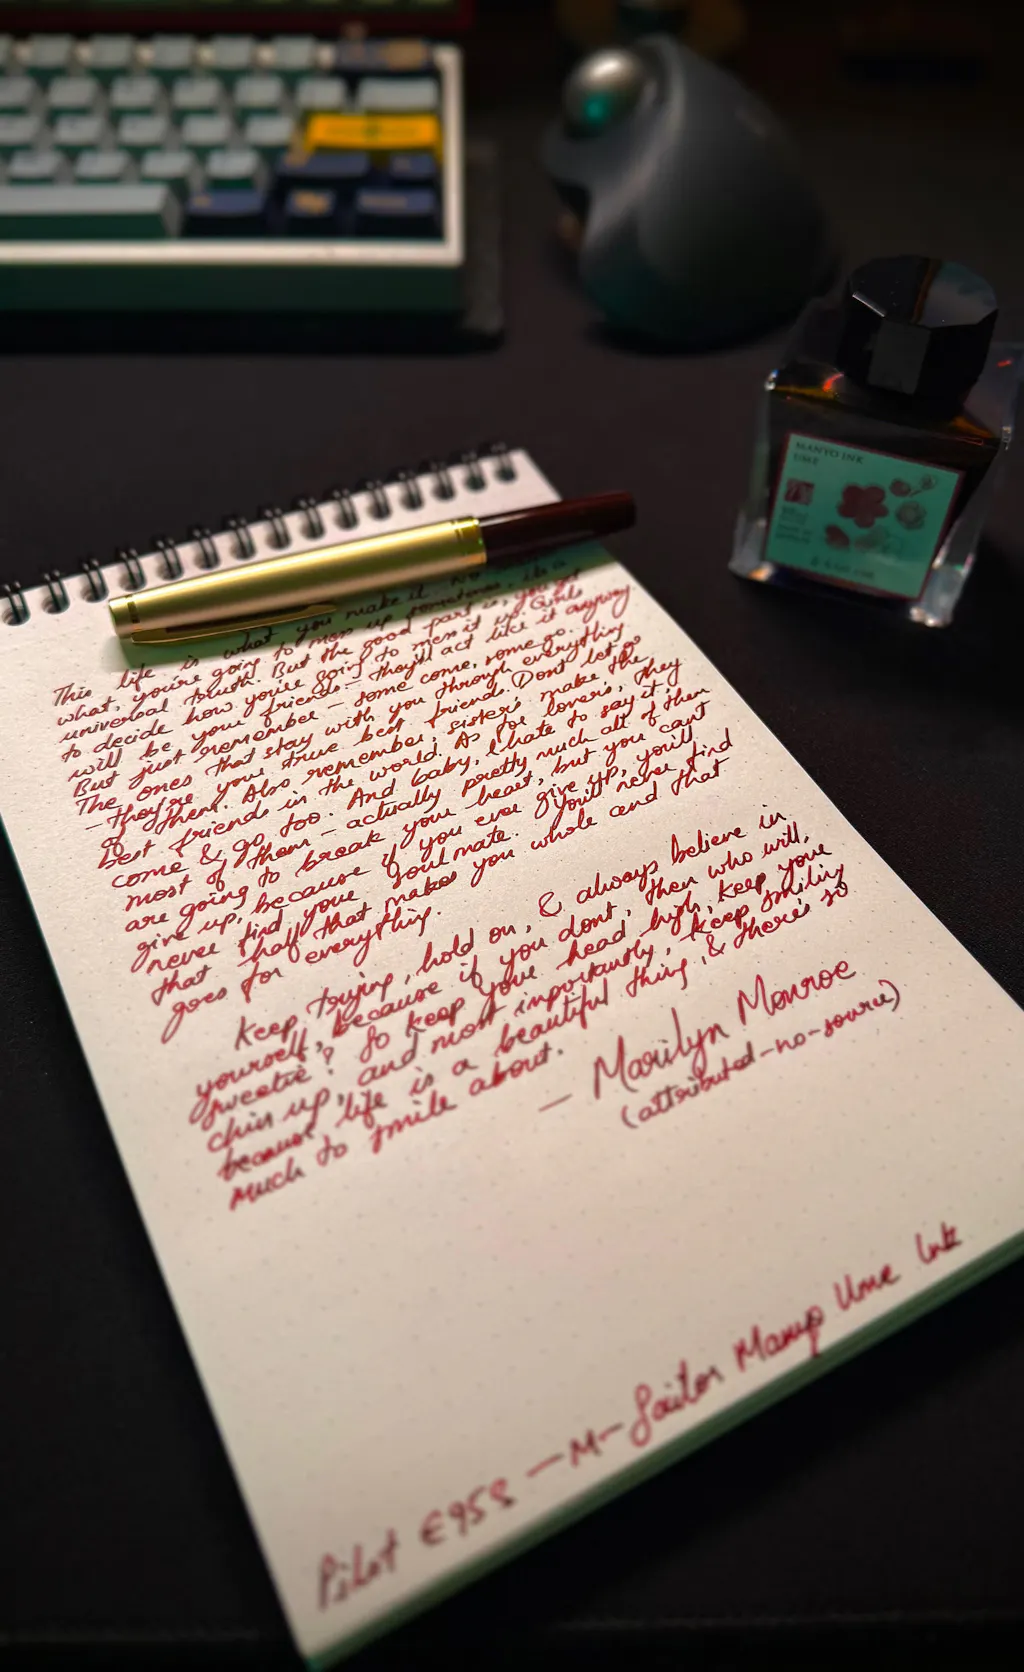 This life is what you make it. No
what, you're going to mess up sometimes, it's a
universal truth. But the good part is, you get
to decide how you're going to mess it up. Girls
will be your friends - they'll act like it anyway
But just remember - some come, some go.
The ones that stay with you through everything
- they're your true best friends. Don't let go
of them. Also remember, sisters make the
best friends in the world. As for lovers, they
come & go too. And baby, I hate to say it,
most of them - actually pretty much all of them
are going to break your heart, but you can't
give up, because if you ever give up, you'll
never find your soulmate. You'll never find
that half that makes you whole and that
goes for everything.
Keep trying, hold on, & always believe in
yourself, because if you dont, then who will,
sweetie? So keep your head high, keep your
chin up, and most importantly, keep smiling
because life is a beautiful thing, & there's so
much to smile about.
— Marilyn Monroe
(attributed-no-source)
Pilot E95S - M - Sailor Manyo Ume Ink
MANYO INK
UME